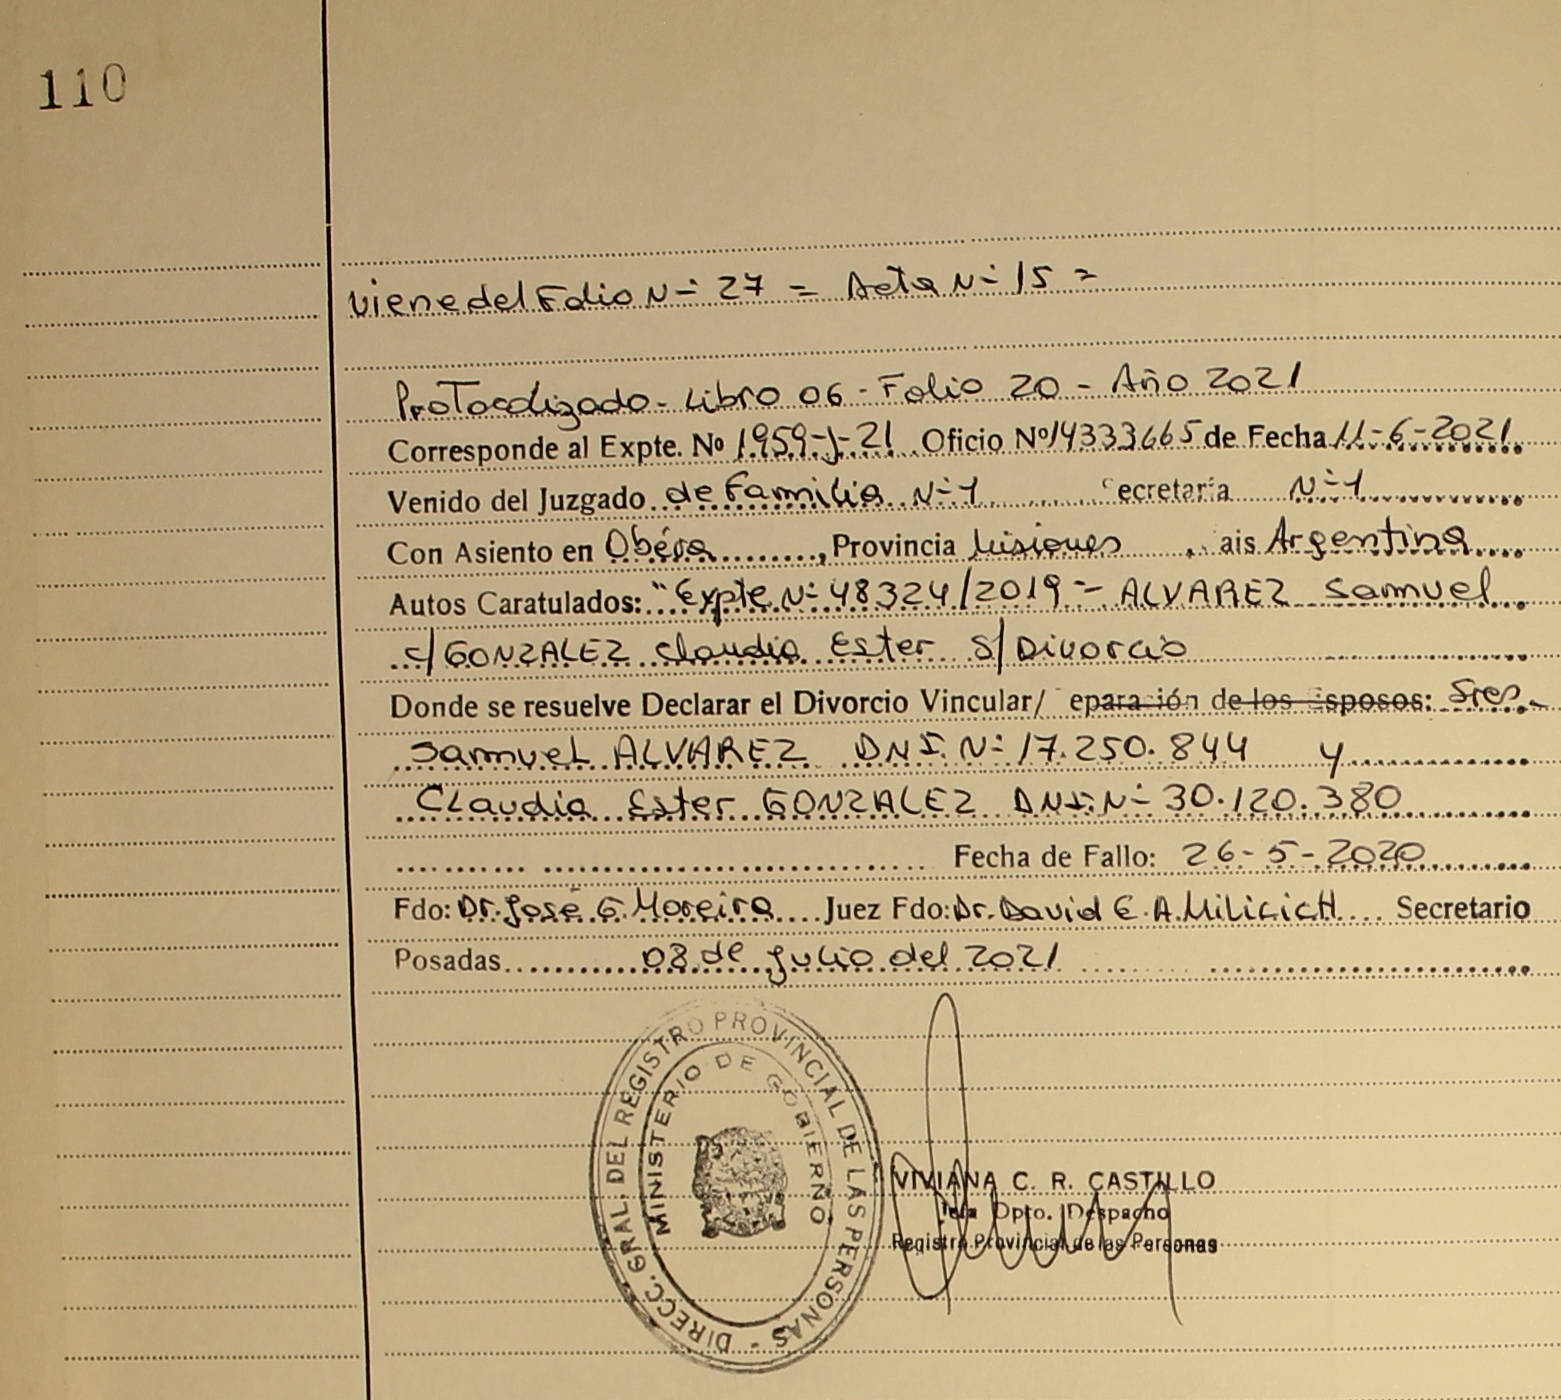 110
viene del Folio N- 27 = Acta N- 15 =
Protocolizado - Libro 06 - Folio 20 - Año 2021
Corresponde al Expte. Nº 1959-J-21 Oficio Nº 14333665 de Fecha 11-6-2021
Venido del Juzgado de Familia N-1 ecretaria N-1
Con Asiento en Oberá, Provincia Misiones, ais Argentina
Autos Caratulados: "Expte N- 48324/2019 - ALVAREZ Samuel
c/ GONZALEZ Claudia Ester s/ Divorcio
Donde se resuelve Declarar el Divorcio Vincular/ eparación de los Esposos: Sres.
Samuel ALVAREZ DNI. N- 17.250.844 y
Claudia Ester GONZALEZ DNI. N- 30.120.380
Fecha de Fallo: 26-5-2020
Fdo: Dr. José G. Moreira Juez Fdo: Dr. David E. A. MiliciCH Secretario
Posadas 08 de julio del 2021
DIRECC. GRAL. DEL REGISTRO PROVINCIAL DE LAS PERSONAS -
MINISTERIO DE GOBIERNO
VIVIANA C. R. CASTILLO
Jefa Dpto. Despacho
Registro Provincial de las Personas